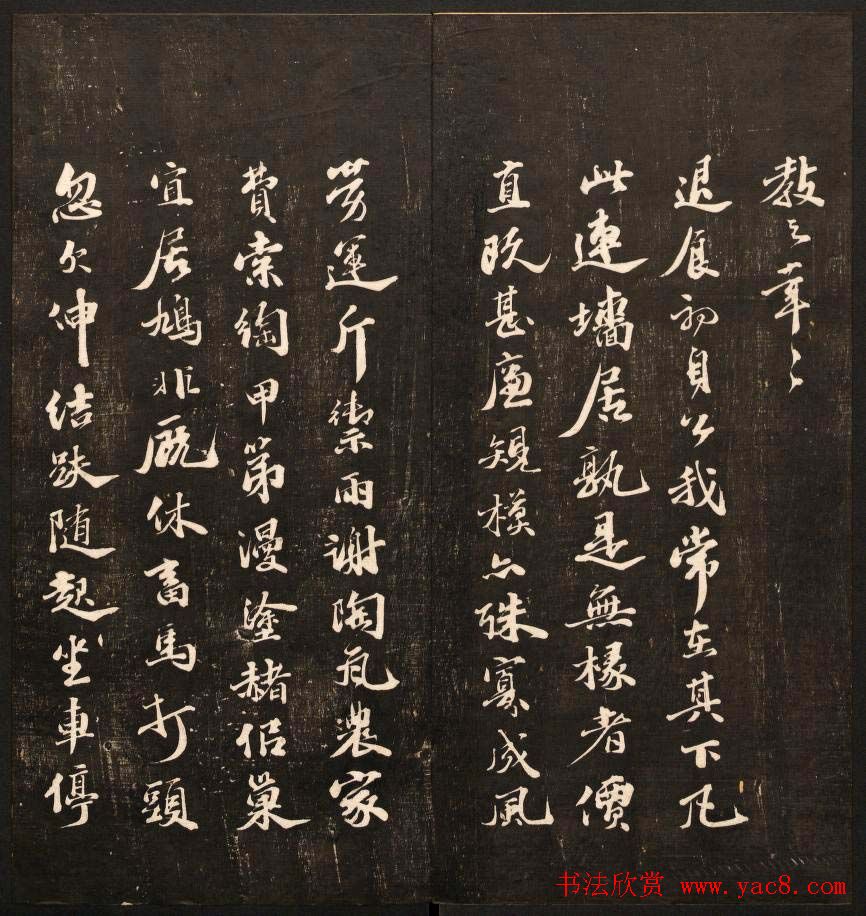 教之幸〻
退食初自公我常在其下凡
此連墻居孰是無椽者價
直既甚廉規模亦殊寡成風
劳運斤禦雨謝陶瓦農家
費索綯甲第漫塗赭侣巢
宜居鳩非厩休畜馬打頭
忽欠伸结趺随起坐車停
书法欣赏 www.yac8.com